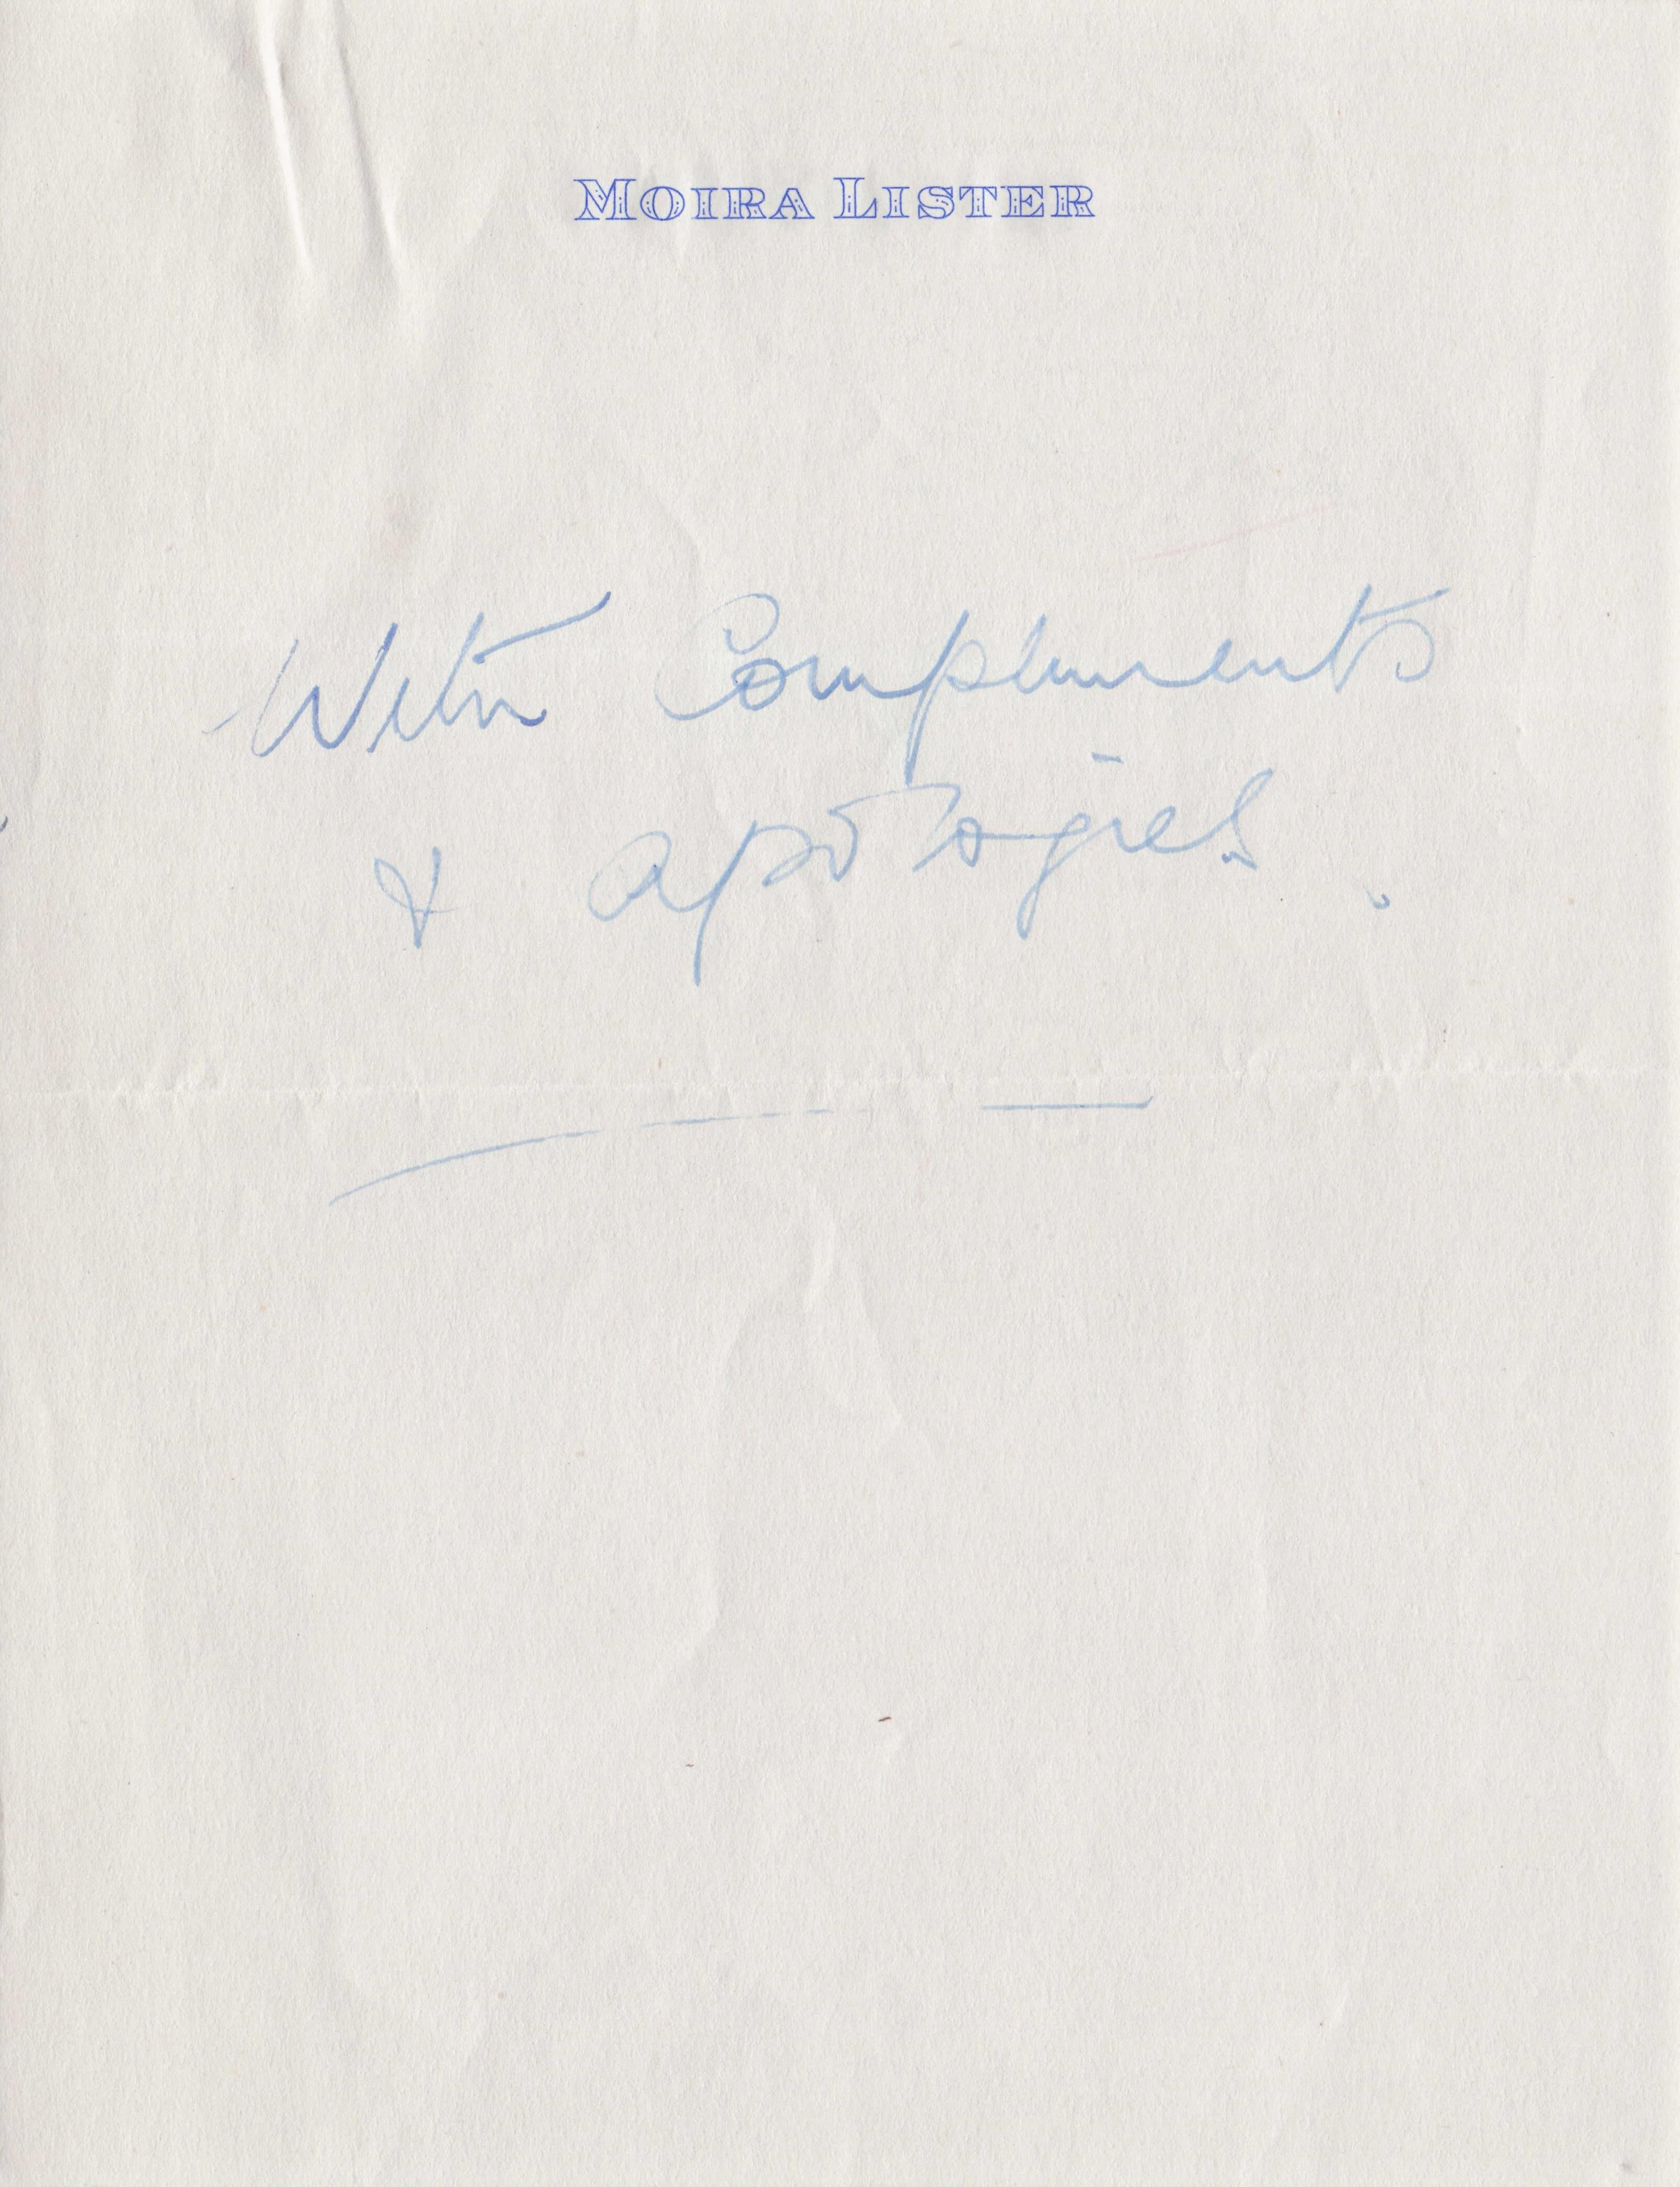 MOIRA LISTER
With Compliments
& apologies.